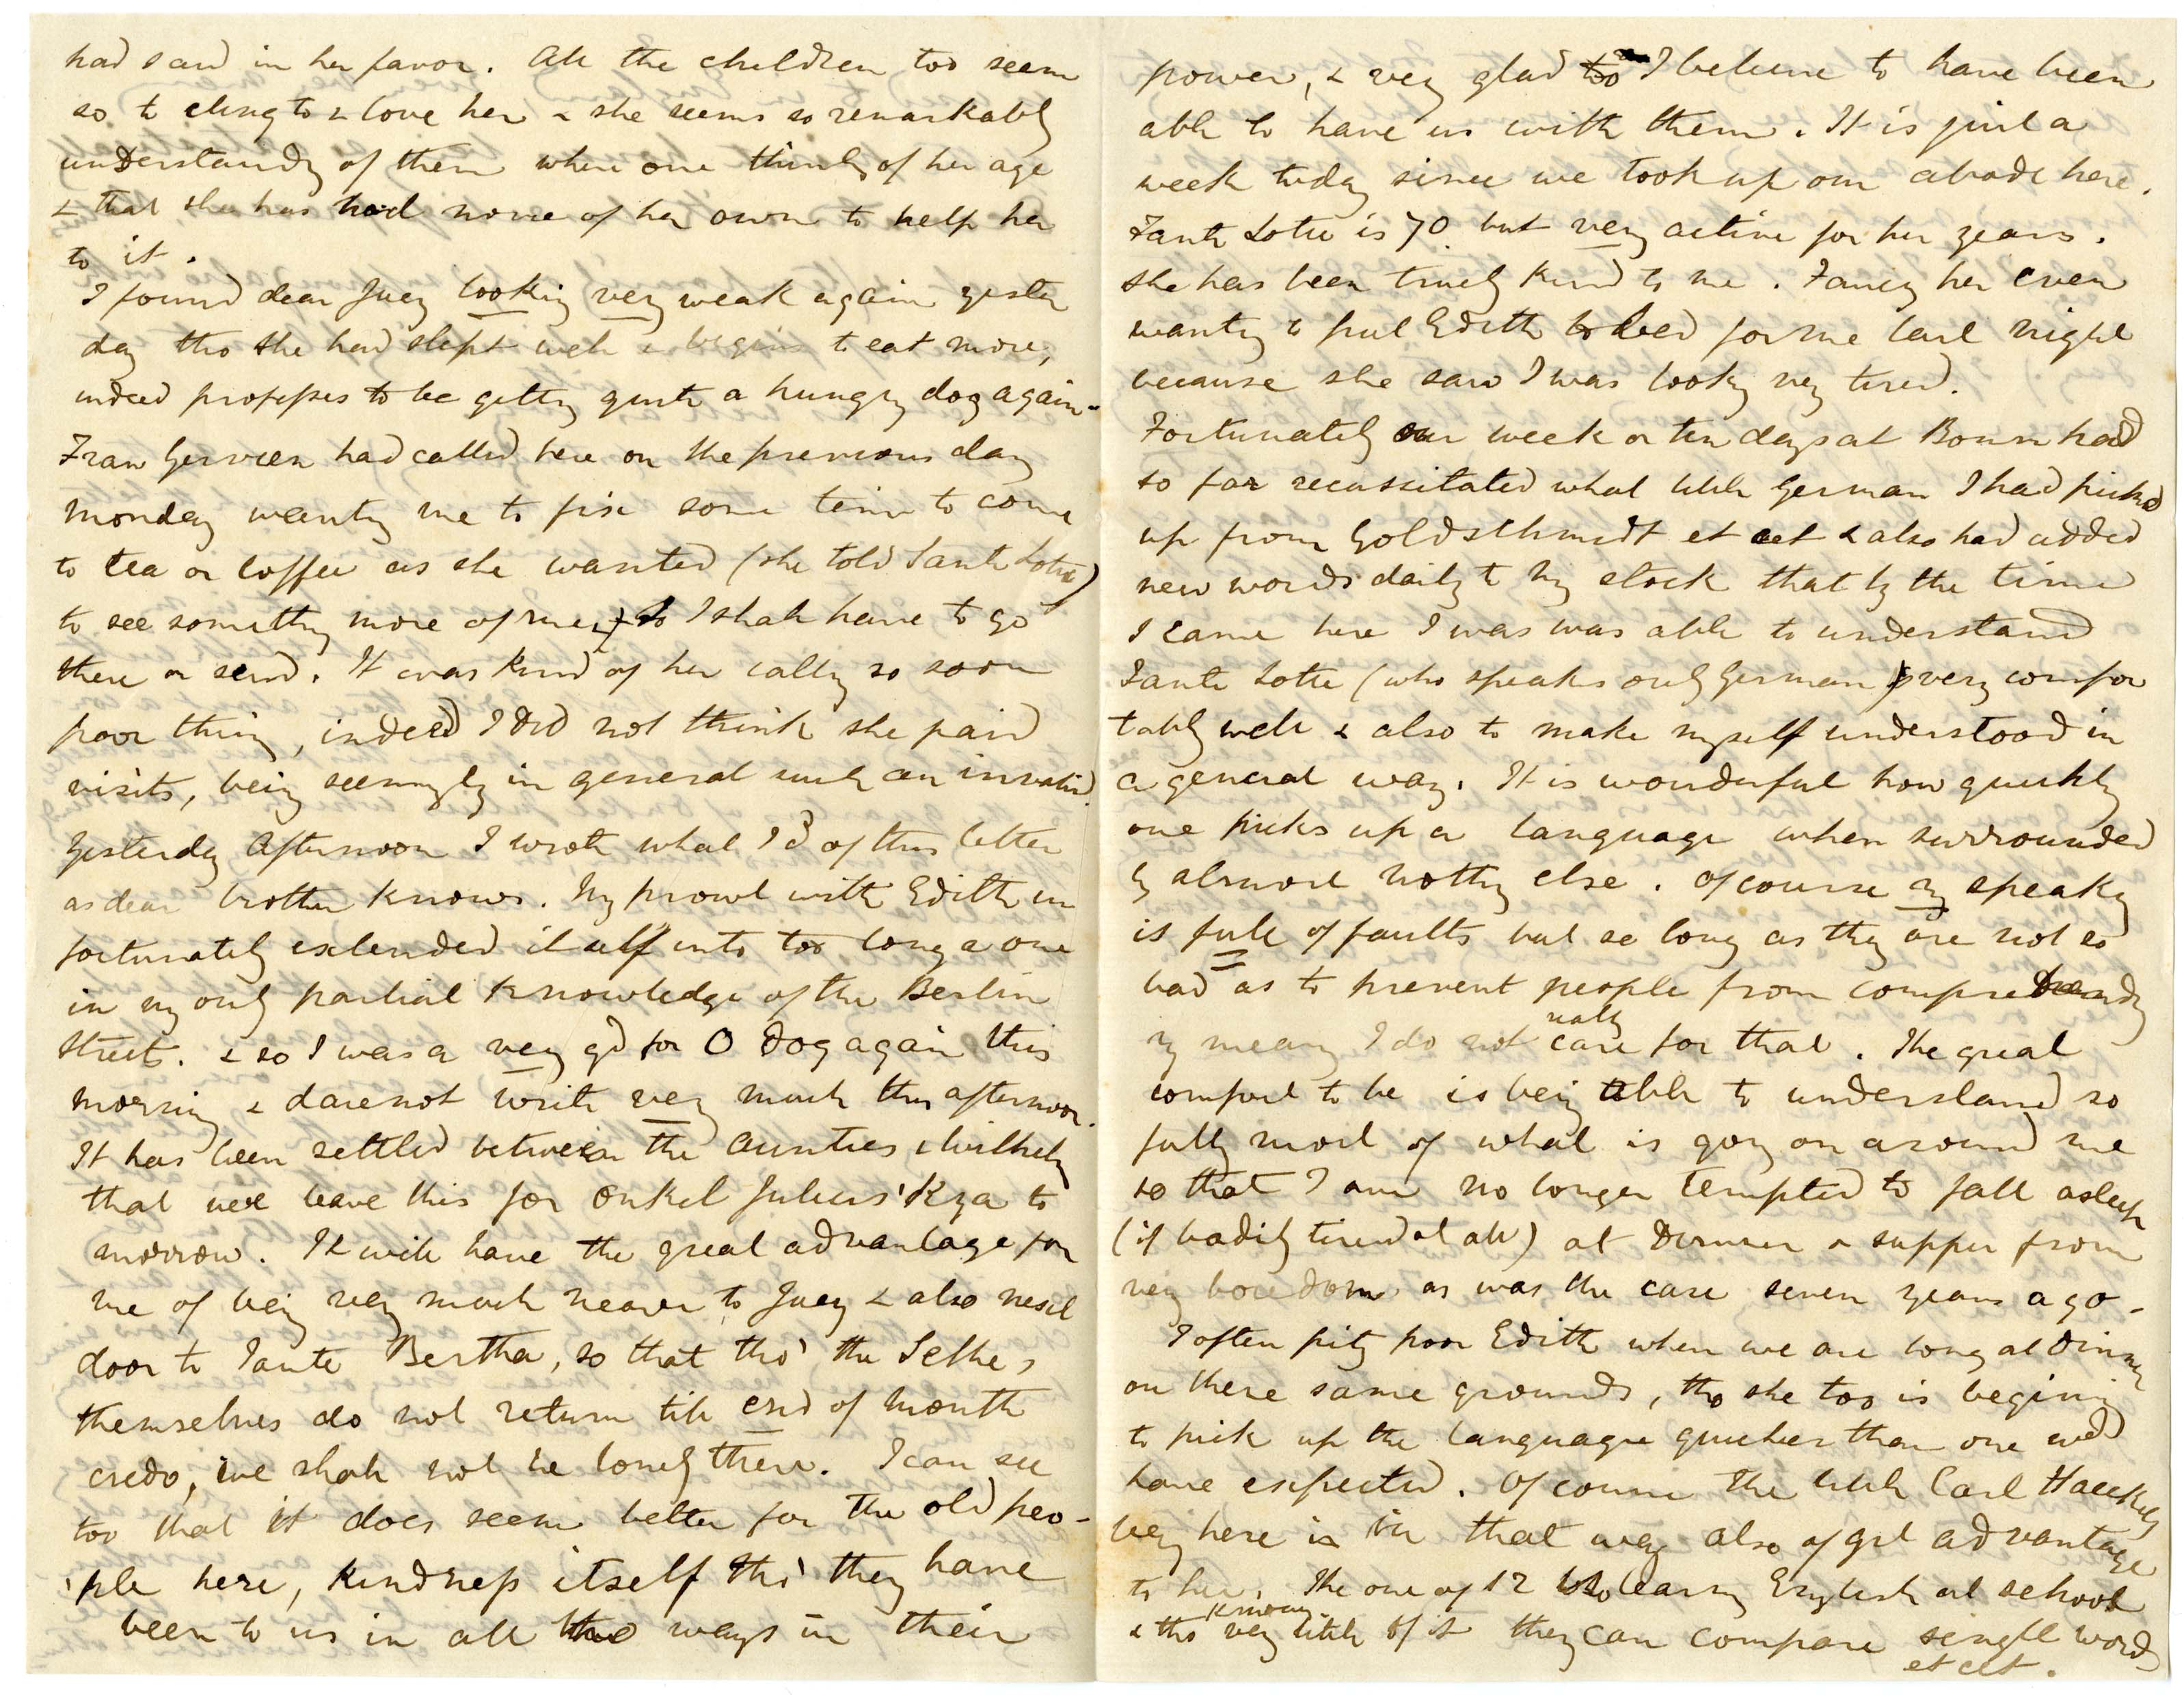 had said in her favor. All the children too seem
so to cling to & love her & she seems so remarkably
understandg of them when one thinks of her age
& that she has had none of her own to help her
to it.
I found dear Juey looking very weak again yester
day tho she had slept well & begins to eat more,
indeed professes to be gettg quite a hungry dog again -
Frau had called here on the previous day
Monday wantg me to fix some time to come
to tea or coffee as she wanted (she told Tante Lotte)
to see somethg more of me, so I shall have to go
there or send. It was kind of her callg so soon
poor thing, indeed I did not think she paid
visits, being seemingly in general such an invalid.
Yesterday afternoon I wrote what I d of this letter
as dear brother knows. My prowl with Edith un
fortunately extended itself into too long a one
in my only partial knowledge of the Berlin
streets. & so I was a very gd for 0 dog again this
morning & dare not write very much this afternoon.
It has been settled between the Aunties &
that we leave this for Onkel Julius' to
morrow. It will have the great advantage for
me of being very much nearer to Juey & also next
door to Tante Bertha, so that tho' the Sethes
themselves do not return till end of month
credo, we shall not be lonely there. I can see
too that it does seem better for the old peo-
'ple here, kindness itself tho' they have
been to us in all ways in their
power, & very glad too I believe to have been
able to have us with them. It is just a
week today since we took up our abode here.
Tante Lotte is 70 but very active for her years.
She has been truely kind to me. Fancy her even
wantg to put Edith to bed for me last night
because she saw I was lookg very tired.
Fortunately our week or ten days at Bonn had
so far recussitated what little German I had picked
up from Goldschmidt et cet & also had added
new words daily to my stock that by the time
I came here I was was able to understand
Tante Lotte (who speaks only German) very comfor
tably well & also to make myself understood in
a general way. It is wonderful how quickly
one picks up a language when surrounded
by almost nothg else. Of course my speakg
is full of faults but so long as they are not so
bad as to prevent people from comprehendg
my meang I do not really care for that. The great
comfort to be is being able to understand so
fully most of what is gog on around me
so that I am no longer tempted to fall asleep
(if bodily tired at all) at dinner & supper from
very boredom as was the case seven years ago -
I often pity poor Edith when we are long at dinner
on these same grounds, tho she too is beging
to pick up the language quicker than one wd
have expected. Of course the little Carl Haeckels
beig here is in that way also of grt advantage
to her. The one of 12 is learng English at school
& tho knowing very little of it they can compare single words
et cet.